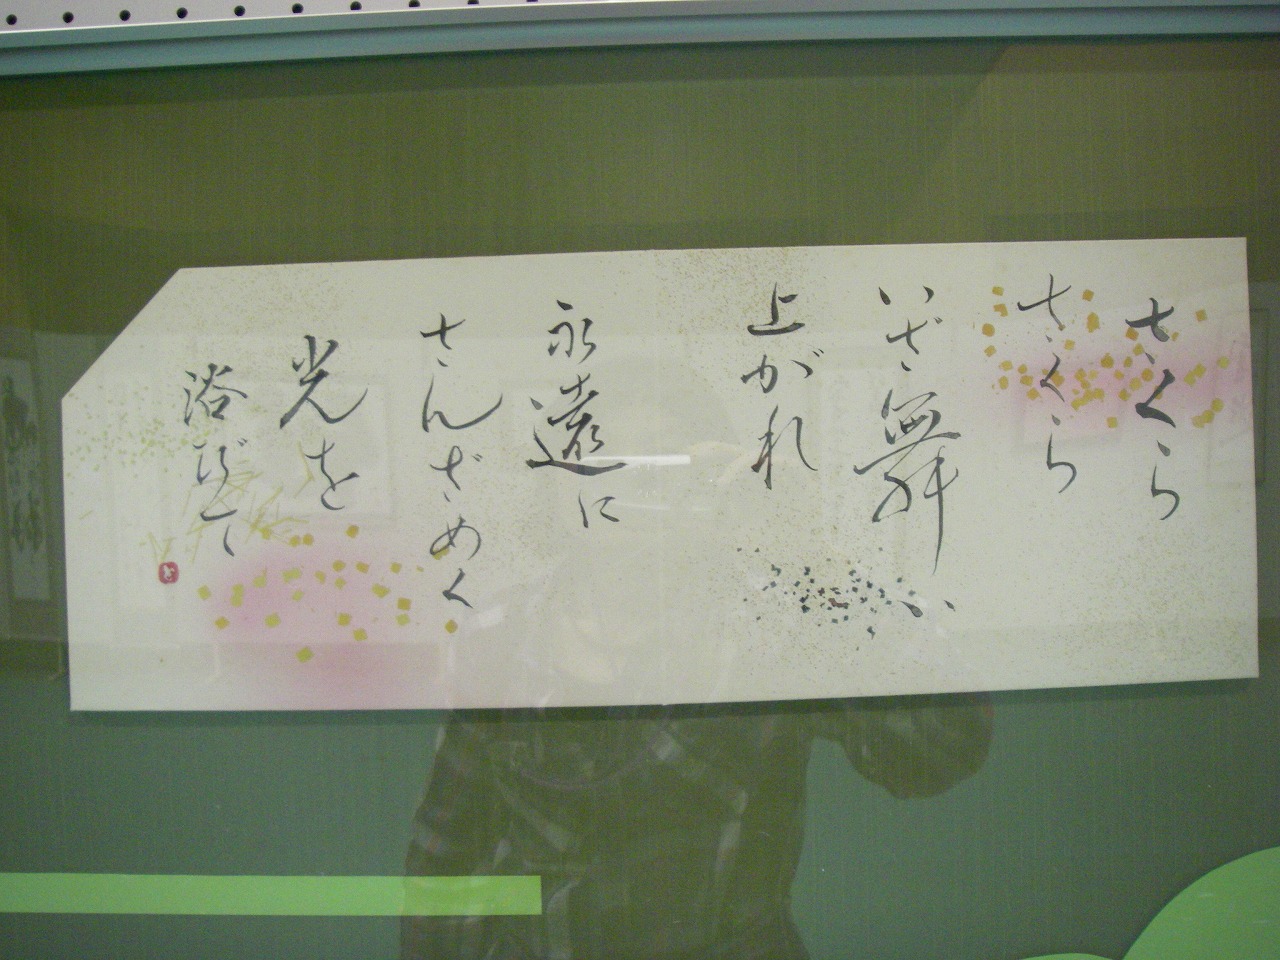 さくら
さくら
いざ舞い
上がれ
永遠に
さんざめく
光を
浴びて